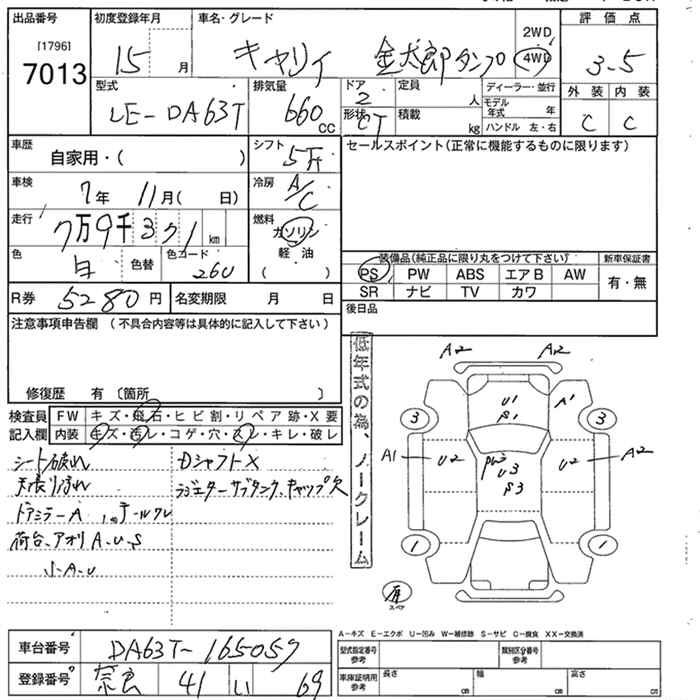 出品番号 初度登録年月 車名・グレード 2WD 4WD 評価点
[1796]
7013 15 月 キャリィ 金太郎ダンプ 3.5
型式 排気量 ドア 定員 ディーラー・並行 外装 内装
LE-DA63T 660 CC 2 人 モデル年式 年 C C
形状 CT 積載 kg ハンドル 左・右
車歴 自家用・( ) シフト 5F セールスポイント(正常に機能するものに限ります)
車検 7年 11月( 日) 冷房 A/C
走行 7万9千3 1 km 燃料 ガソリン
色 白 色替 色コード 26U 軽油 ( )
装備品(純正品に限り丸をつけて下さい) 新車保証書
PS PW ABS エアB AW 有・無
SR ナビ TV カワ
R券 5280円 名変期限 月 日 後日品
注意事項申告欄 (不具合内容等は具体的に記入して下さい)
修復歴 有 〔箇所 〕
検査員記入欄 FW キズ・飛石・ヒビ割・リペア跡・X要
内装 キズ・汚レ・コゲ・穴・スレ・キレ・破レ
シート破れ DシャフトX
天張り汚れ ラジエターサブタンク、キャップ欠
ドアミラーA テールワレ
荷台、アオリA.U.S
A.U
低年式の為、ノークレーム
A2 A2
U1 A1
S1
3 3
A1 U2 U3 U2 A2
S3
1 1
有
スペア
A-キズ E-エクボ U-凹み W-補修跡 S-サビ C-腐食 XX-交換済
車台番号 DA63T-165057 型式指定番号 参考 類別区分番号 参考
登録番号 奈良 41 い 69 車庫証明用 参考 長さ cm 幅 cm 高さ cm